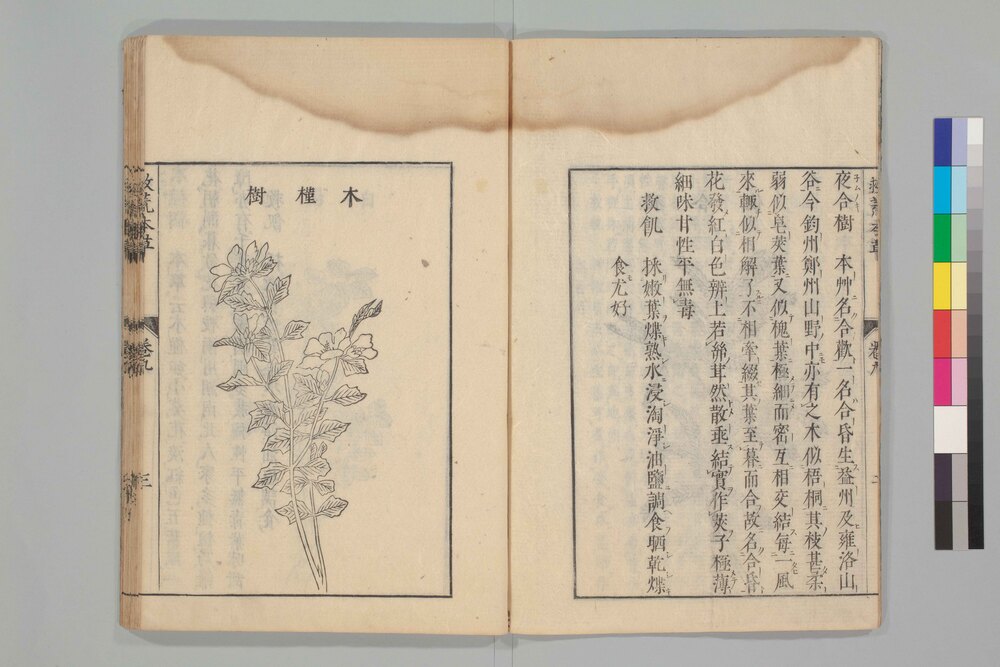 夜合樹 本艸名合歡一名合昏生益州及雍洛山
谷今鈞州鄭州山野中亦有之木似梧桐其枝甚柔
弱似皂莢葉又似槐葉極細而密互相交結每一風
來輙似相解了不相牽綴其葉至暮而合故名合昏
花發紅白色瓣上若絲茸然散垂結實作莢子極薄
細味甘性平無毒
救飢 採嫩葉煠熟水浸淘淨油鹽調食晒乾煠
食尤好
木槿樹
卷九
三